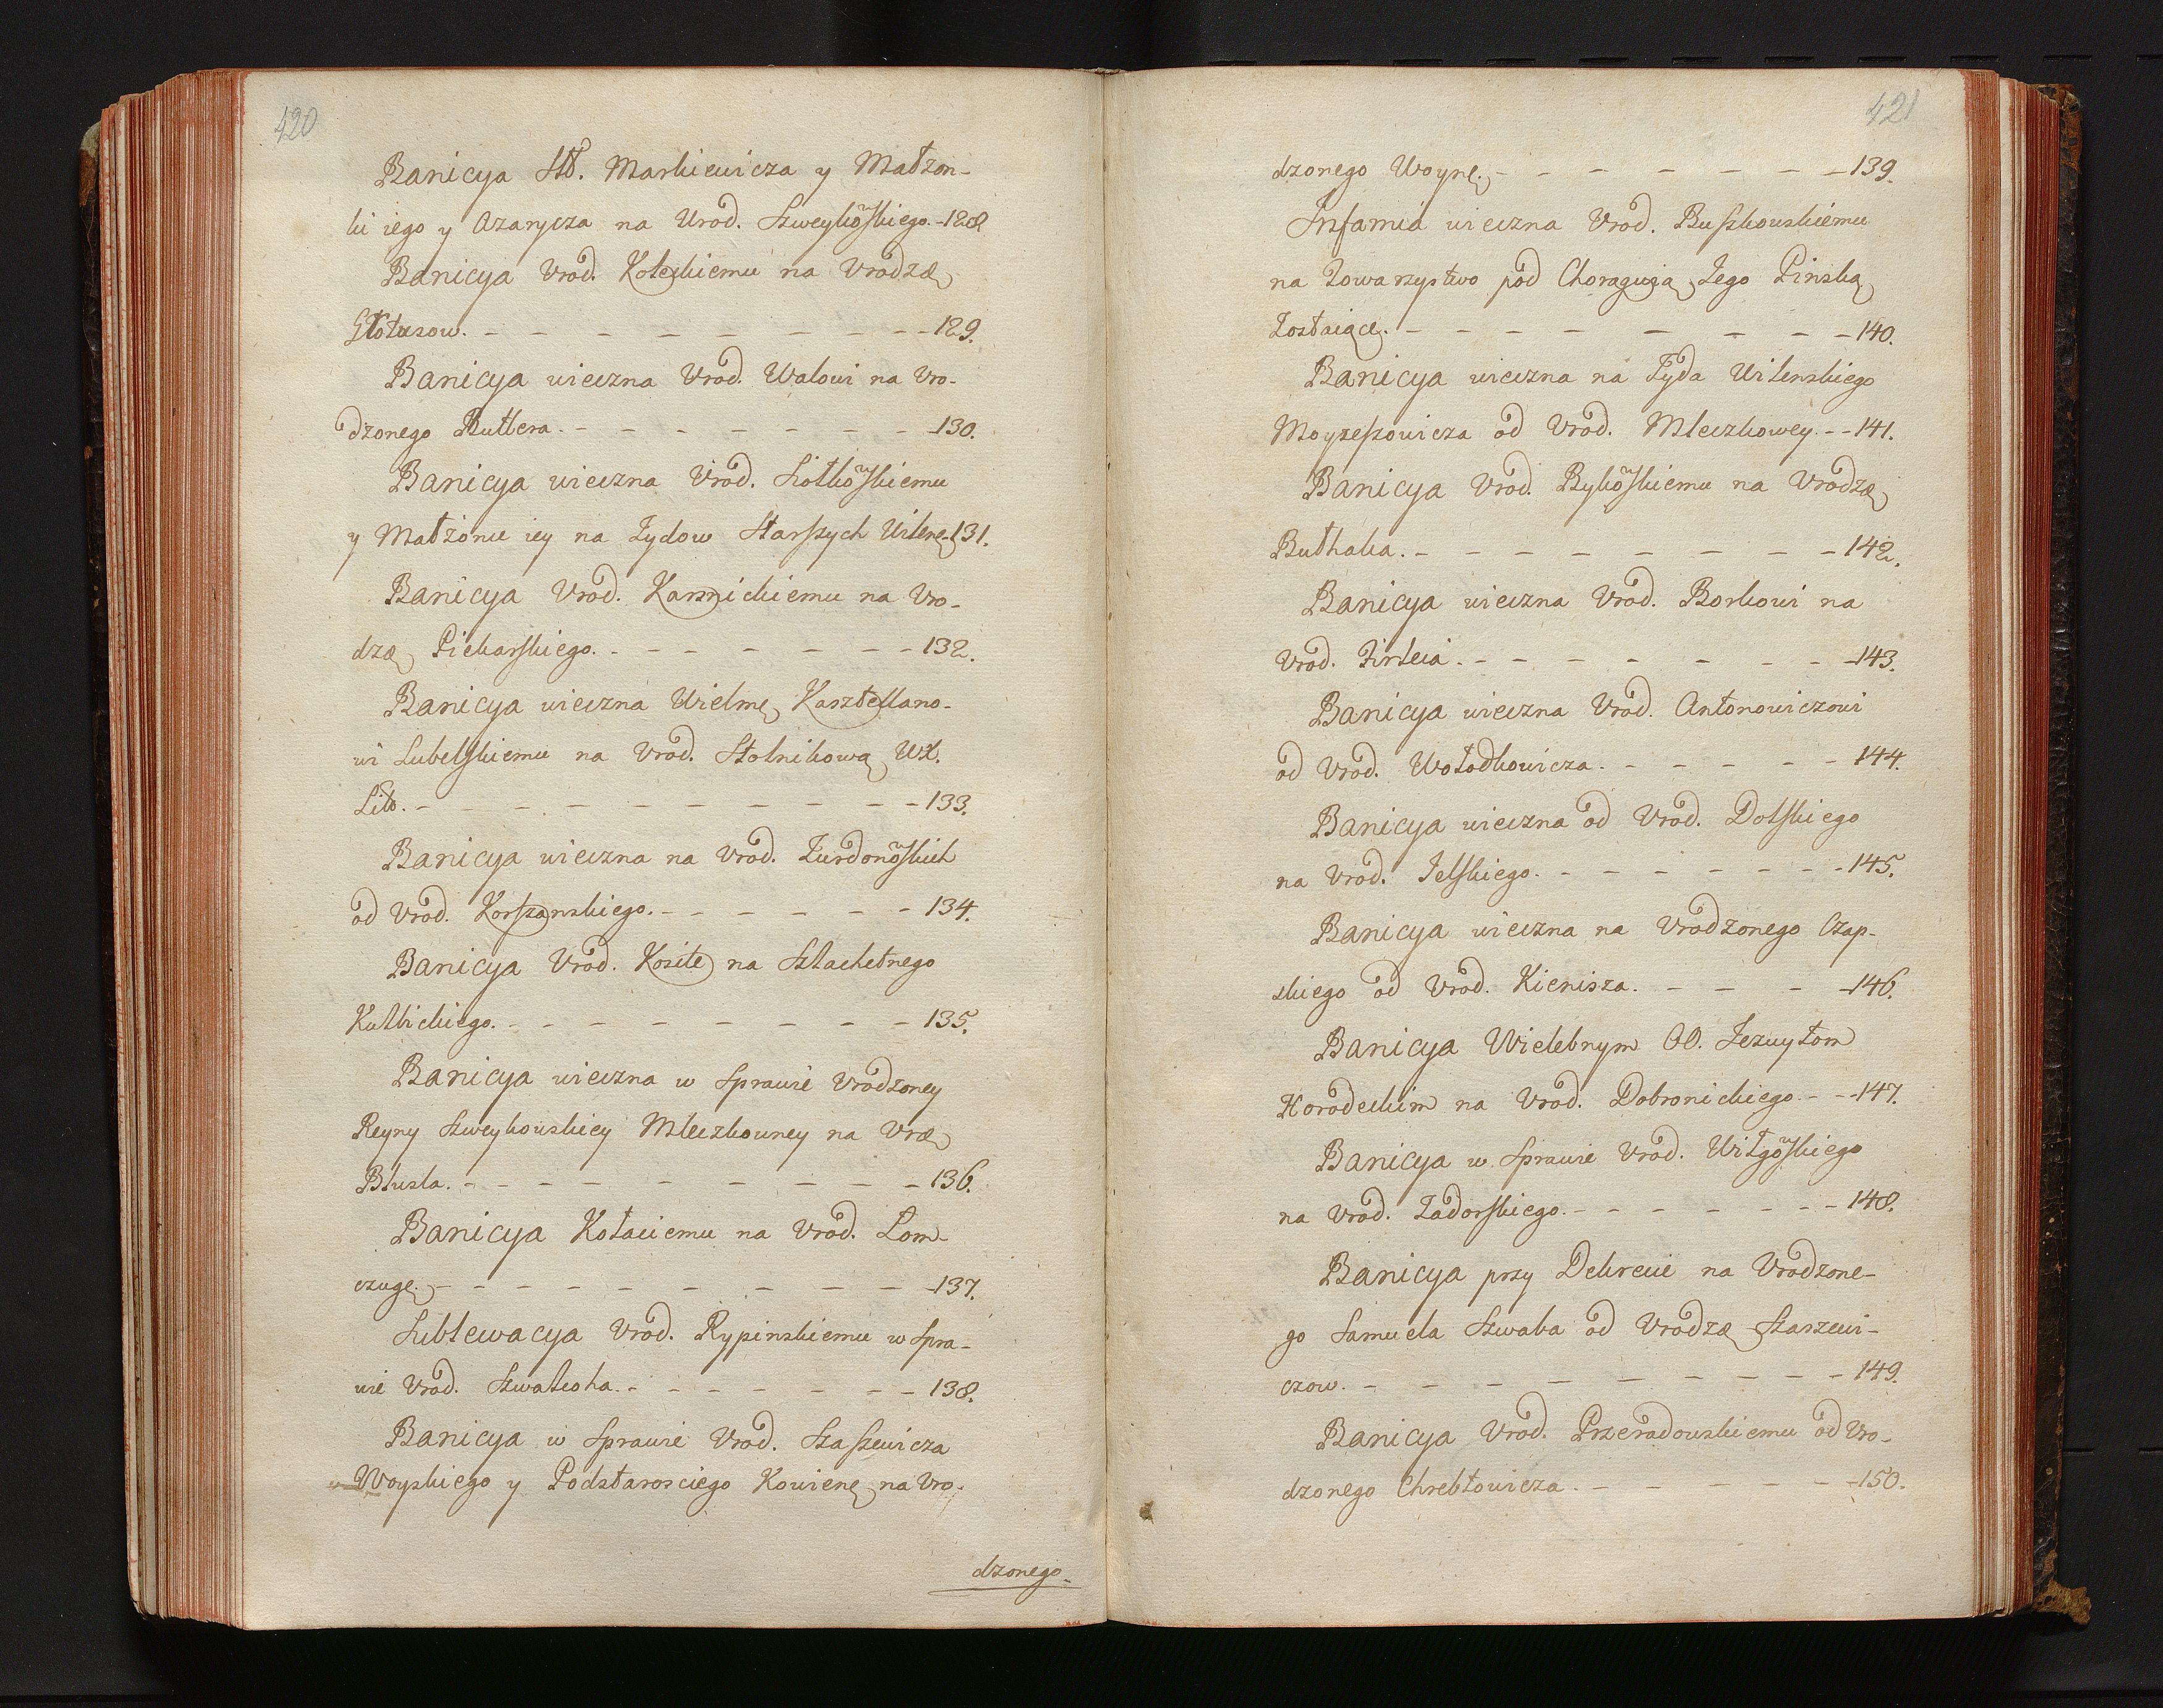 420
Banicya Stt. Markiewicza y Małżon-
ki iego y Azarycza na Urod. Szweykowskiego.-128
Banicya Vrod. Koteckiemu na Vrodzæ
Głotusow. - - - - - - - - - 129.
Banicya wieczna Vrod. Walowi na Vro-
dzonego Buttera. - - - - - - - 130.
Banicya wieczna Vrod. Siotkowskiemu
y Małżonce iey na Zydow Starszych Wilenę.131.
Banicya Vrod. Karsnickiemu na Vro-
dzæ Piekarskiego. - - - - - - - 132.
Banicya wieczna Wielmę Kasztellano-
wi Lubelskiemu na Vrod. Stolnikową WX.
Litt. - - - - - - - - - - 133.
Banicya wieczna na Vrod. Zurdonowskich
od Vrod. Korszanskiego. - - - - - - 134.
Banicya Vrod. Kozite na Szlachetnego
Kulbickiego. - - - - - - - - 135.
Banicya wieczna w Sprawie Vrodzoney
Reyny Szweykowskiey Mleczkowney na Vræ
Bluszla. - - - - - - - - - 136.
Banicya Kotaciemu na Vrod. Łom-
czugę. - - - - - - - - - 137.
Sublewacya Vrod. Rypinskiemu w Spra-
wie Vrod. Szwatkoha. - - - - - - - 138.
Banicya w Sprawie Vrod. Staszewicza
Woyskiego y Podstarosciego Kowienę na Vro-
dzonego-
421
dzonego Woynę. - - - - - - - 139.
Infamia wieczna Vrod. Buszkowskiemu
na Towarzystwo pod Chorągwią Jego Pinską
Zostaiące. - - - - - - - 140.
Banicya wieczna na Żyda Wilenskiego
Moyzeszowicza od Vrod. Mleczkowey. - - 141.
Banicya Vrod. Bykowskiemu na Vrodzæ
Buthaka. - - - - - - - - 142.
Banicya wieczna Vrod. Borkowi na
Vrod. Firleia. - - - - - - - 143.
Banicya wieczna Vrod. Antonowiczowi
od Vrod. Wołodkowicza. - - - - - 144.
Banicya wieczna od Vrod. Dolskiego
na Vrod. Jelskiego. - - - - - - - 145.
Banicya wieczna na Vrodzonego Czap-
skiego od Vrod. Kienisza. - - - - 146.
Banicya Wielebnym OO. Jezuytom
Horodeckim na Vrod. Dobronickiego. - - 147.
Banicya w Sprawie Vrod. Witgowskiego
na Vrod. Zadorskiego. - - - - - - - 148.
Banicya przy Dekrecie na Vrodzone-
go Samuela Szwaba od Vrodzæ Starzewi-
czow. - - - - - - - - - 149.
Banicya Vrod. Przeradowskiemu od Vro-
dzonego Chrebtowicza. - - - - - 150.